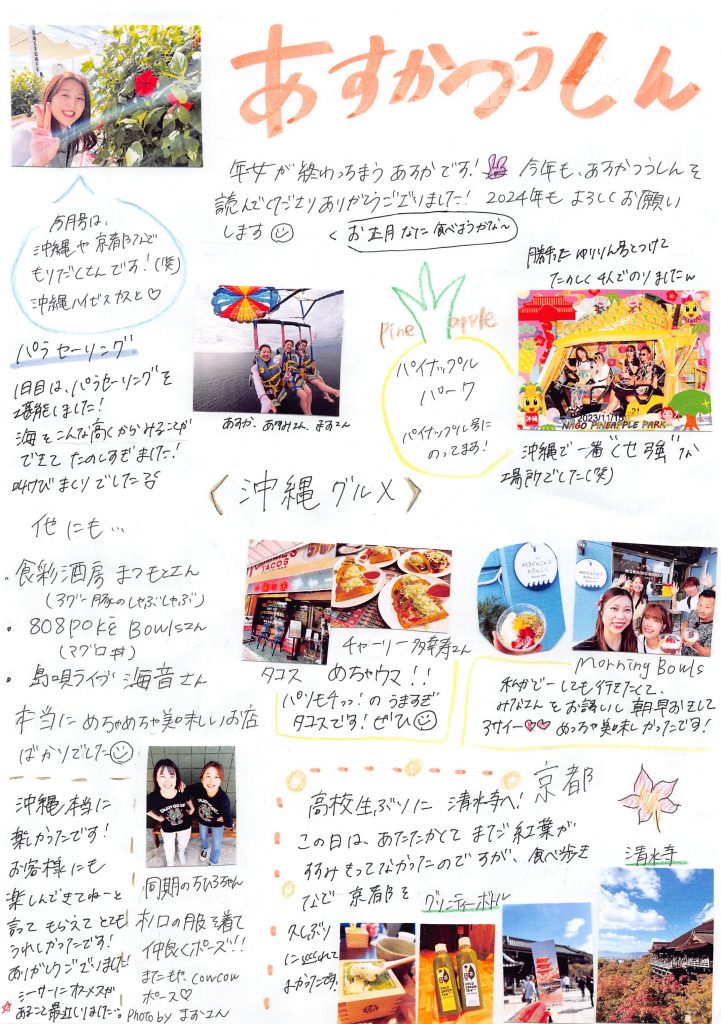 あすかつうしん
年女が終わっちまう あすかです! 今年も、あすかつうしんを
読んでくださりありがとうございました! 2024年も よろしくお願い
します
お正月なに食べようかな〜
今月号は、
沖縄や京都など
もりだくさんです!(笑)
沖縄ハイビスカスと♡
パラセーリング
1日目は、パラセーリングを
堪能しました!
海をこんな高くからみることが
できて たのしすぎました!
叫びまくりでした
あすか、あゆみさん、ますさん
pine apple
パイナップル
パーク
パイナップル号に
のってます!
勝手に ゆりりん号とつけて
たのしく4人でのりましたw
2023/11/15
NAGO PINEAPPLE PARK
沖縄で一番"くせ強"な
場所でした(笑)
〈沖縄グルメ〉
他にも…
・食彩酒房 まつもとさん
(アグー豚のしゃぶしゃぶ)
・808 poke Bowlsさん
(マグロ丼)
・島唄ライブ 海音さん
本当に めちゃめちゃ美味しいお店
ばかりでした
TACOS
チャーリー多幸寿さん
タコス めちゃウマ!!
パリもチっ!のうますぎ
タコスです! ぜひ
MORNING BOWLS
Morning Bowls
私がどーしても行きたくて、
みなさんをお誘いし 朝早おきして
3サイー♡♡ めっちゃ美味しかったです!
沖縄本当に
楽しかったです!
お客様にも
楽しんできてねーと
言ってもらえて とても
うれしかったです!
ありがとうございました!
シーサーにオスメスが
あること最近知りました。
同期のちひろちゃん
オソロの服を着て
仲良くポーズ!!
またもや、cowcow
ポーズ♡
Photo by ますさん
京都
高校生ぶりに 清水寺へ!
この日は、あたたかくて まだ紅葉が
すすみきってなかったのですが、食べ歩き
なで 京都を グリーンティーボトル
久しぶり
に巡れて
よかったです!
清水寺